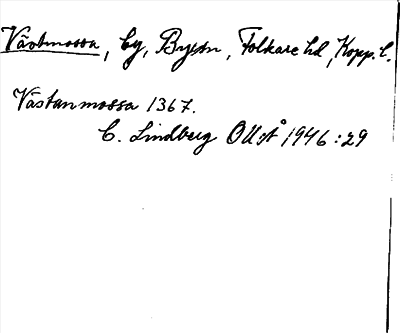 Västmossa, by, By sn, Folkare hd, Kopp. l.
Västanmossa 1367.
C. Lindberg OUÅ 1946 : 29